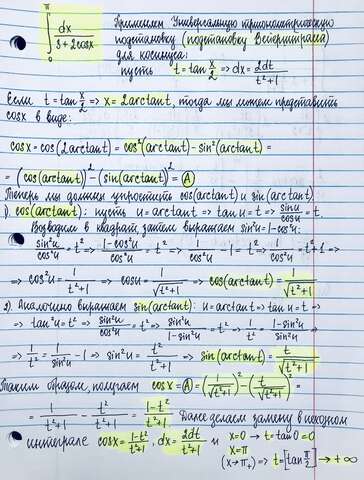 ∫₀^π dx/(3+2cosx) Применяем Универсальную тригонометрическую
подстановку (подстановку Вейерштрасса)
для косинуса:
пусть t = tan x/2 => dx = 2dt/(t²+1)
Если t = tan x/2 => x = 2arctant, тогда мы можем представить
cosx в виде:
cosx = cos(2arctant) = cos²(arctant) - sin²(arctant) =
= (cos(arctant))² - (sin(arctant))² = A
Теперь мы должны упростить cos(arctant) и sin(arctant).
1). cos(arctant): пусть u = arctant => tanu = t => sinu/cosu = t.
Возводим в квадрат, затем выражаем sin²u = 1-cos²u:
sin²u/cos²u = t² => (1-cos²u)/cos²u = t² => 1/cos²u - 1 = t² => 1/cos²u = t²+1 =>
=> cos²u = 1/(t²+1) => cosu = 1/√(t²+1) => cos(arctant) = 1/√(t²+1)
2). Аналогично выражаем sin(arctant): u = arctant => tanu = t =>
=> tan²u = t² => sin²u/cos²u = t² => sin²u/(1-sin²u) = t² => 1/t² = (1-sin²u)/sin²u =>
=> 1/t² = 1/sin²u - 1 => sin²u = t²/(t²+1) => sin(arctant) = t/√(t²+1)
Таким образом, получаем cosx = A = (1/√(t²+1))² - (t/√(t²+1))² =
= 1/(t²+1) - t²/(t²+1) = (1-t²)/(t²+1) Далее делаем замену в исходном
интеграле cosx = (1-t²)/(t²+1), dx = 2dt/(t²+1) и x=0 → t = tan0 = 0
x=π
(x→π₊) => t = [tan π/2] → +∞